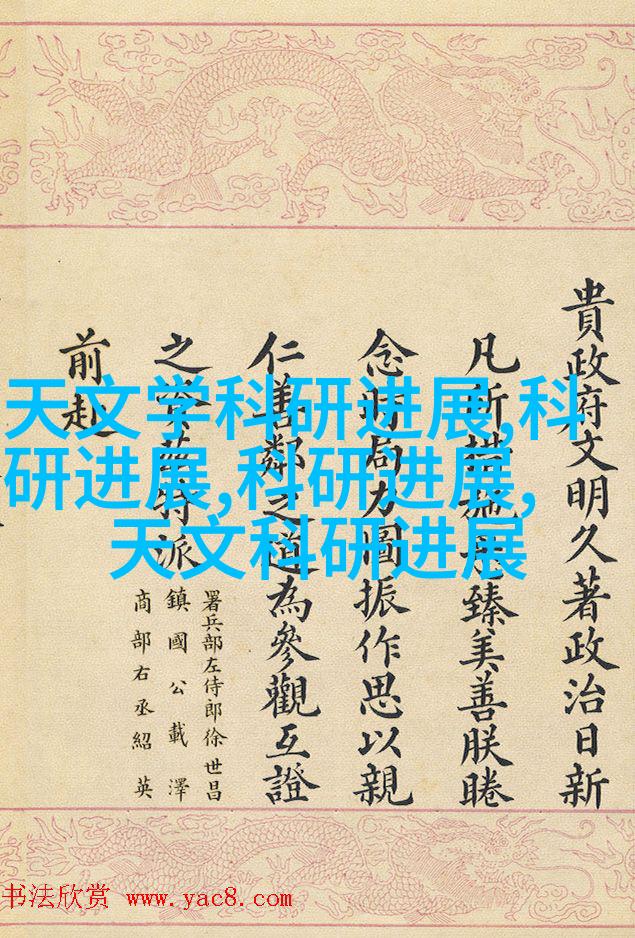 天文学科研进展,科
研进展,科研进展,
天文科研进展
貴政府文明久著政治日新
凡所措施悉臻美善朕睠
念時局力圖振作思以親
仁善鄰之道為參觀互證
之資茲特派
署兵部左侍郎徐世昌
鎮國公載澤
商部右丞紹英
前赴
书法欣赏 www.yac8.com